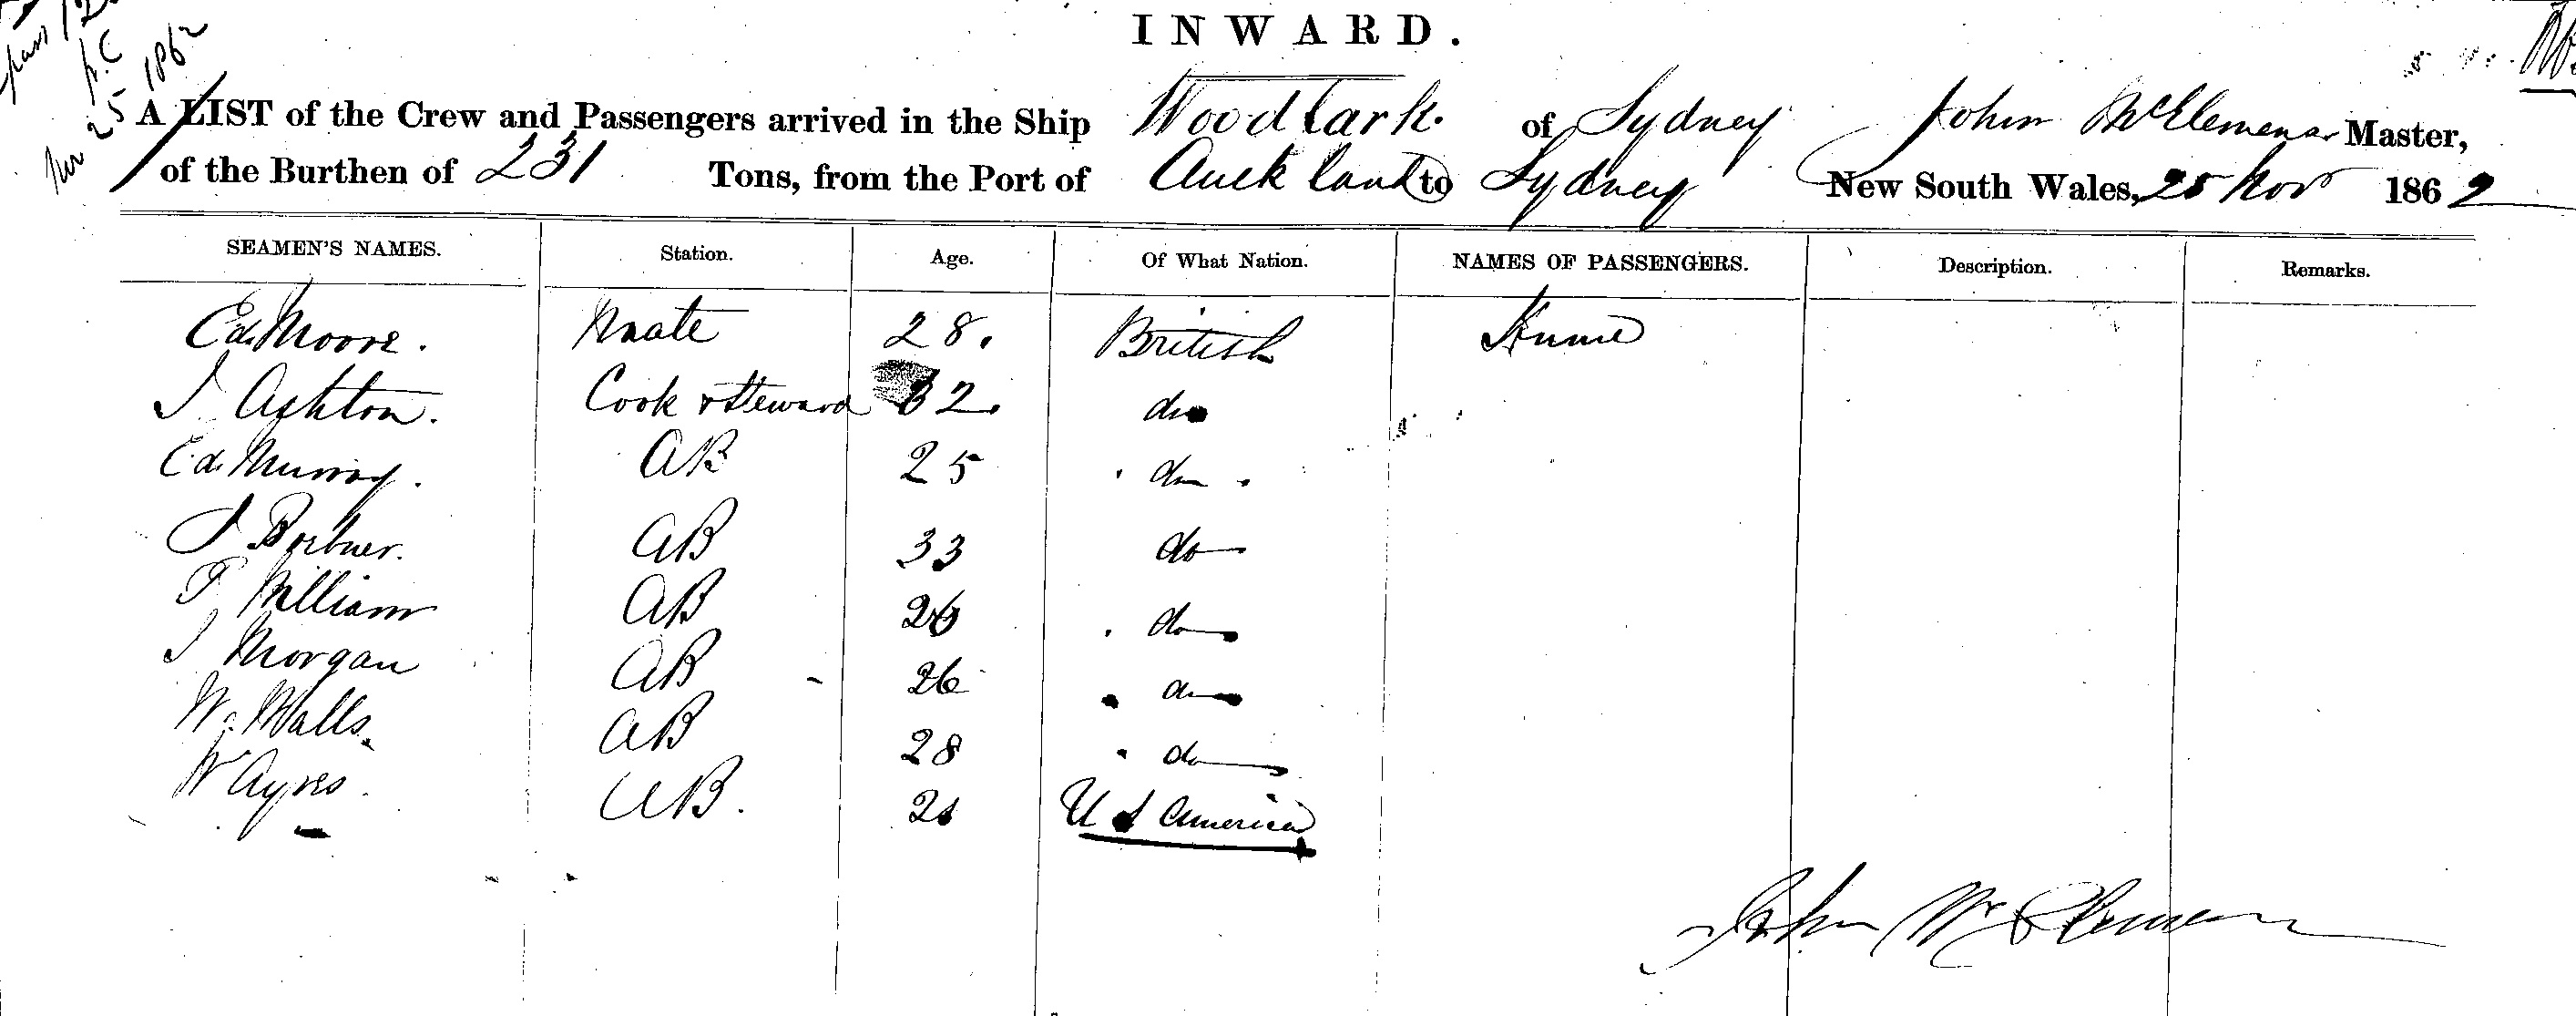 INWARD.
1862
A LIST of the Crew and Passengers arrived in the Ship Woodlark. of Sydney John McClemens Master,
of the Burthen of 231 Tons, from the Port of Auckland to Sydney New South Wales, 25 Nov 1862
SEAMEN'S NAMES. Station. Age. Of What Nation. NAMES OF PASSENGERS. Description. Remarks.
Ed. Moore. Mate 28. British
J Ashton. Cook & Steward 32. do
Ed. Murray. AB 25 do
J AB 33 do
William AB 26 do
J Morgan AB 26 do
W. Walls. AB 28 do
W Ayres. AB. U S America
John